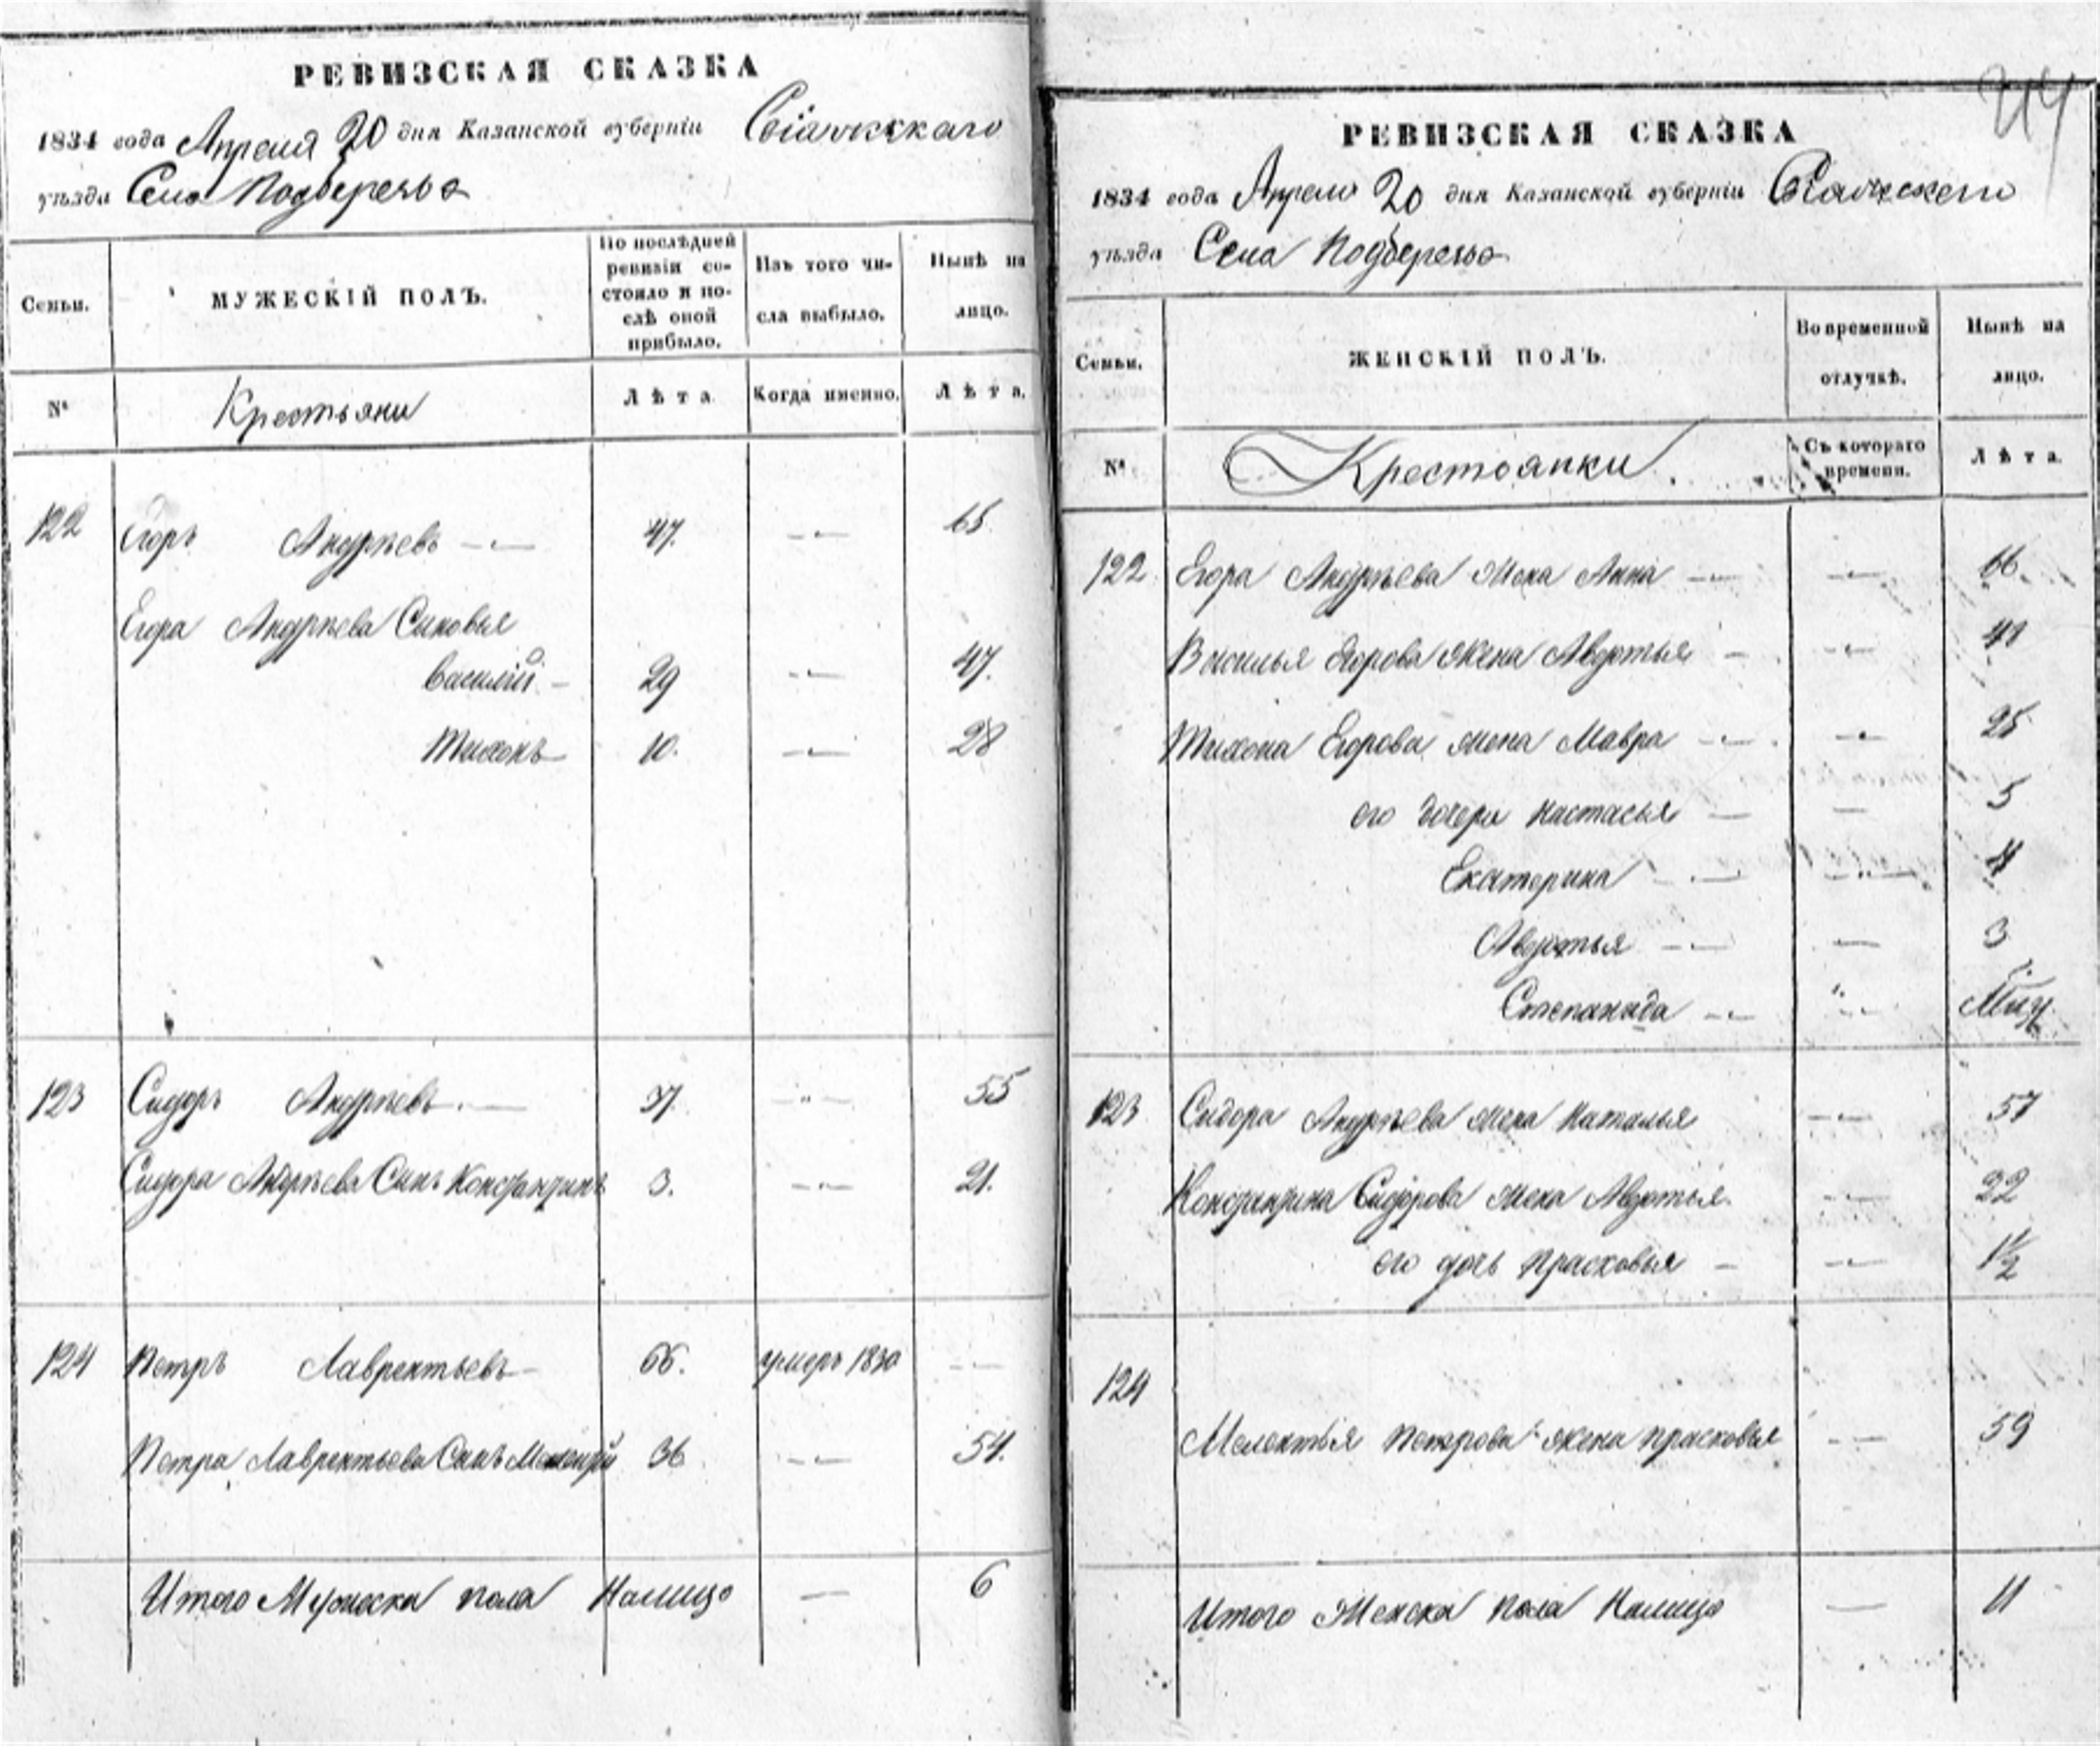 РЕВИЗСКАЯ СКАЗКА
1834 года Апреля 20 дня Казанской губерніи Свіажскаго
уѣзда Села Подберезьа
Семьи. МУЖЕСКІЙ ПОЛЪ. По послѣдней ревизіи состояло и послѣ оной прибыло. Изъ того числа выбыло. Нынѣ на лицо.
№ Крестьяни Лѣта. Когда именно. Лѣта.
122 Егоръ Андрѣевъ — 47. — 65.
Егора Андрѣева Сыновья
Василій — 29 — 47.
Тихонъ — 10. — 28
123 Сидоръ Андрѣевъ. — 37. — 55
Сидора Андрѣева Сынъ Константинъ 3. — 21.
124 Петръ Лаврентьевъ — 66. умеръ 1830 —
Петра Лаврентьева Сынъ Мелентій 36 — 54.
Итого Мужеска пола Налицо — 6
РЕВИЗСКАЯ СКАЗКА
1834 года Апреля 20 дня Казанской губерніи Свіажскаго
уѣзда Села Подберезьа
Семьи. ЖЕНСКІЙ ПОЛЪ. Во временной отлучкѣ. Нынѣ на лицо.
№ Крестьянки. Съ котораго времени. Лѣта.
122 Егора Андрѣева Жена Анна — — 66.
Василья Егорова Жена Авдотья — — 41
Тихона Егорова жена Мавра — — 25
его дочери Настасья — — 5
Екатерина — — 4
Авдотья — — 3
Степанида — —
123 Сидора Андрѣева жена Наталья — 57
Константина Сидорова жена Авдотья. — 22
его дочь Прасковья — — 1½
124
Мелентья Петрова жена Прасковья — 59
Итого Женска пола Налицо — 11